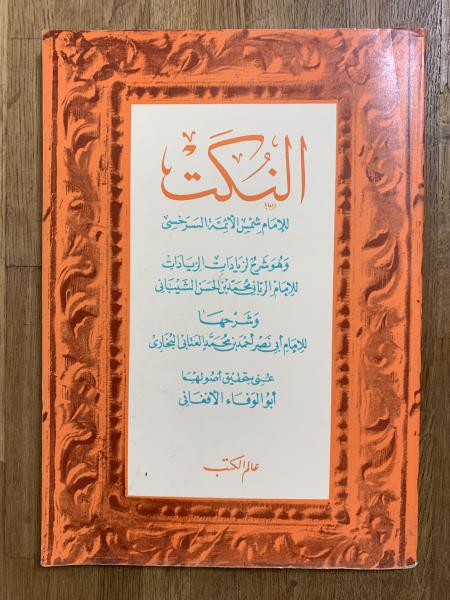 النُكَتْ
للإمام شمس الأئمة السرخسي
وهو شرح لزيادات الزيادات
للإمام الرباني محمد بن الحسن الشيباني
وشرحها
للإمام أبي نصر أحمد بن محمد العتابي البخاري
عني بتحقيق أصولهما
أبو الوفاء الأفغاني
عالم الكتب